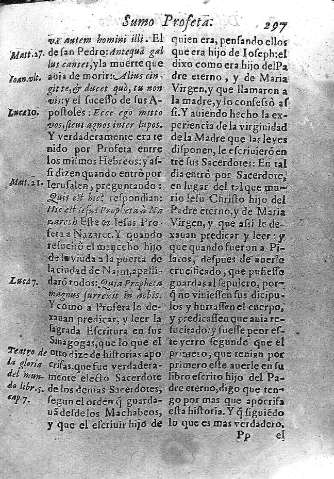 Sumo Profeta. 297
væ autem homini illi. El
de san Pedro: Antequã gal
lus cantet, y la muerte que
auia de morir: Alius cin-
git te, & ducet quò, tu non
vis: y el sucesso de sus A-
postoles: Ecce ego mitto
vos, sicut agnos inter lupos.
Y verdaderamente era te
nido por Profeta entre
los mismos Hebreos: y as-
si dizen quando entrò por
Ierusalen, preguntando:
Quis est hic? respondian:
Hic est Iesus Propheta à Na
zareth Este es Iesus Pro-
feta de Nazaret. Y quando
resucitò el mancebo hijo
de la viuda a la puerta de
la ciudad de Naim, apelli-
daró todos: Quia Propheta
magnus surrexit in nobis.
Y como a Profeta le de-
xauan predicar, y leer la
sagrada Escritura en sus
Sinagogas, que lo que el
otro dize de historias apo
crifas, que fue verdadera-
mente electo Sacerdote
de los demas Sacerdotes,
segun el orden q̃ guarda-
uã desde los Machabeos,
y que el escriuir hijo de
Matt. 27.
Ioan. vlt.
Luc. 10.
Mat. 21.
Luc. 7.
Teatro de
la gloria
del mun-
do libr. 5.
cap 7.
quien era, pensando ellos
que era hijo de Ioseph: el
dixo como era hijo del Pa
dre eterno, y de Maria
Virgen, y que llamaron a
la madre, y lo confessò as
si. Y auiendo hecho la ex-
periencia de la virginidad
de la Madre que las leyes
disponen, le escriuierō en
tre sus Sacerdotes: En tal
dia entrò por Sacerdote,
en lugar del tal que mu-
rio Iesu Christo hijo del
Padre eterno, y de Maria
Virgen, y que assi le de-
xauan predicar y leer: y
que quando fueron a Pi-
latos, despues de auerle
crucificado, que pusiesse
guardas al sepulcro, por-
q̃ no viniessen sus dicipu-
los y hurtassen el cuerpo,
y predicassen que auia re-
sucitado: y fuesse peor es-
te yerro segundo que el
primero, que tenian por
primero este auerle en su
libro escrito hijo del Pa-
dre eterno, digo que ten-
go por mas que apocrifa
esta historia. Y q̃ siguiẽdo
lo que es mas verdadero,
Pp el